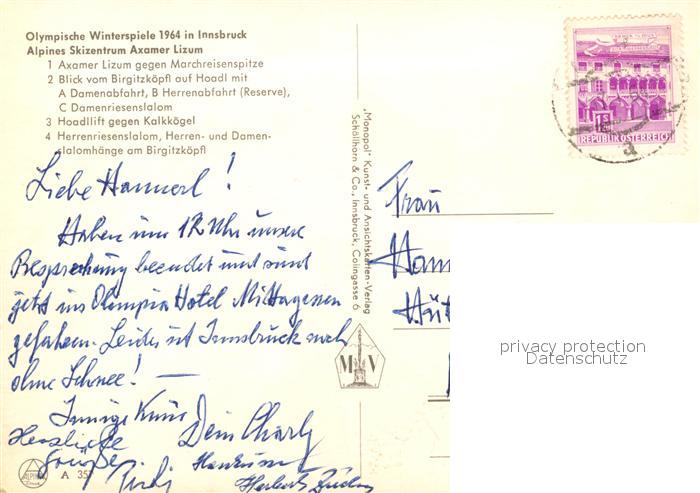 Olympische Winterspiele 1964 in Innsbruck
Alpines Skizentrum Axamer Lizum
1 Axamer Lizum gegen Marchreisenspitze
2 Blick vom Birgitzköpfl auf Hoadl mit
A Damenabfahrt, B Herrenabfahrt (Reserve),
C Damenriesenslalom
3 Hoadllift gegen Kalkkögel
4 Herrenriesenslalom, Herren- und Damen-
slalomhänge am Birgitzköpfl
Liebe Hannerl!
Haben um 12 Uhr unsere
Besprechung beendet und sind
jetzt ins Olympia Hotel Mittagessen
gefahren. Leider ist Innsbruck noch
ohne Schnee! —
Innige Küsse
Dein Charly
Herzliche
Grüße
Herbert
A 357
"Monopol" Kunst- und Ansichtskarten-Verlag
Schöllhorn & Co., Innsbruck, Colingasse 6
M V
1S
REPUBLIK ÖSTERREICH
Frau
Hann
Hüt
privacy protection
Datenschutz